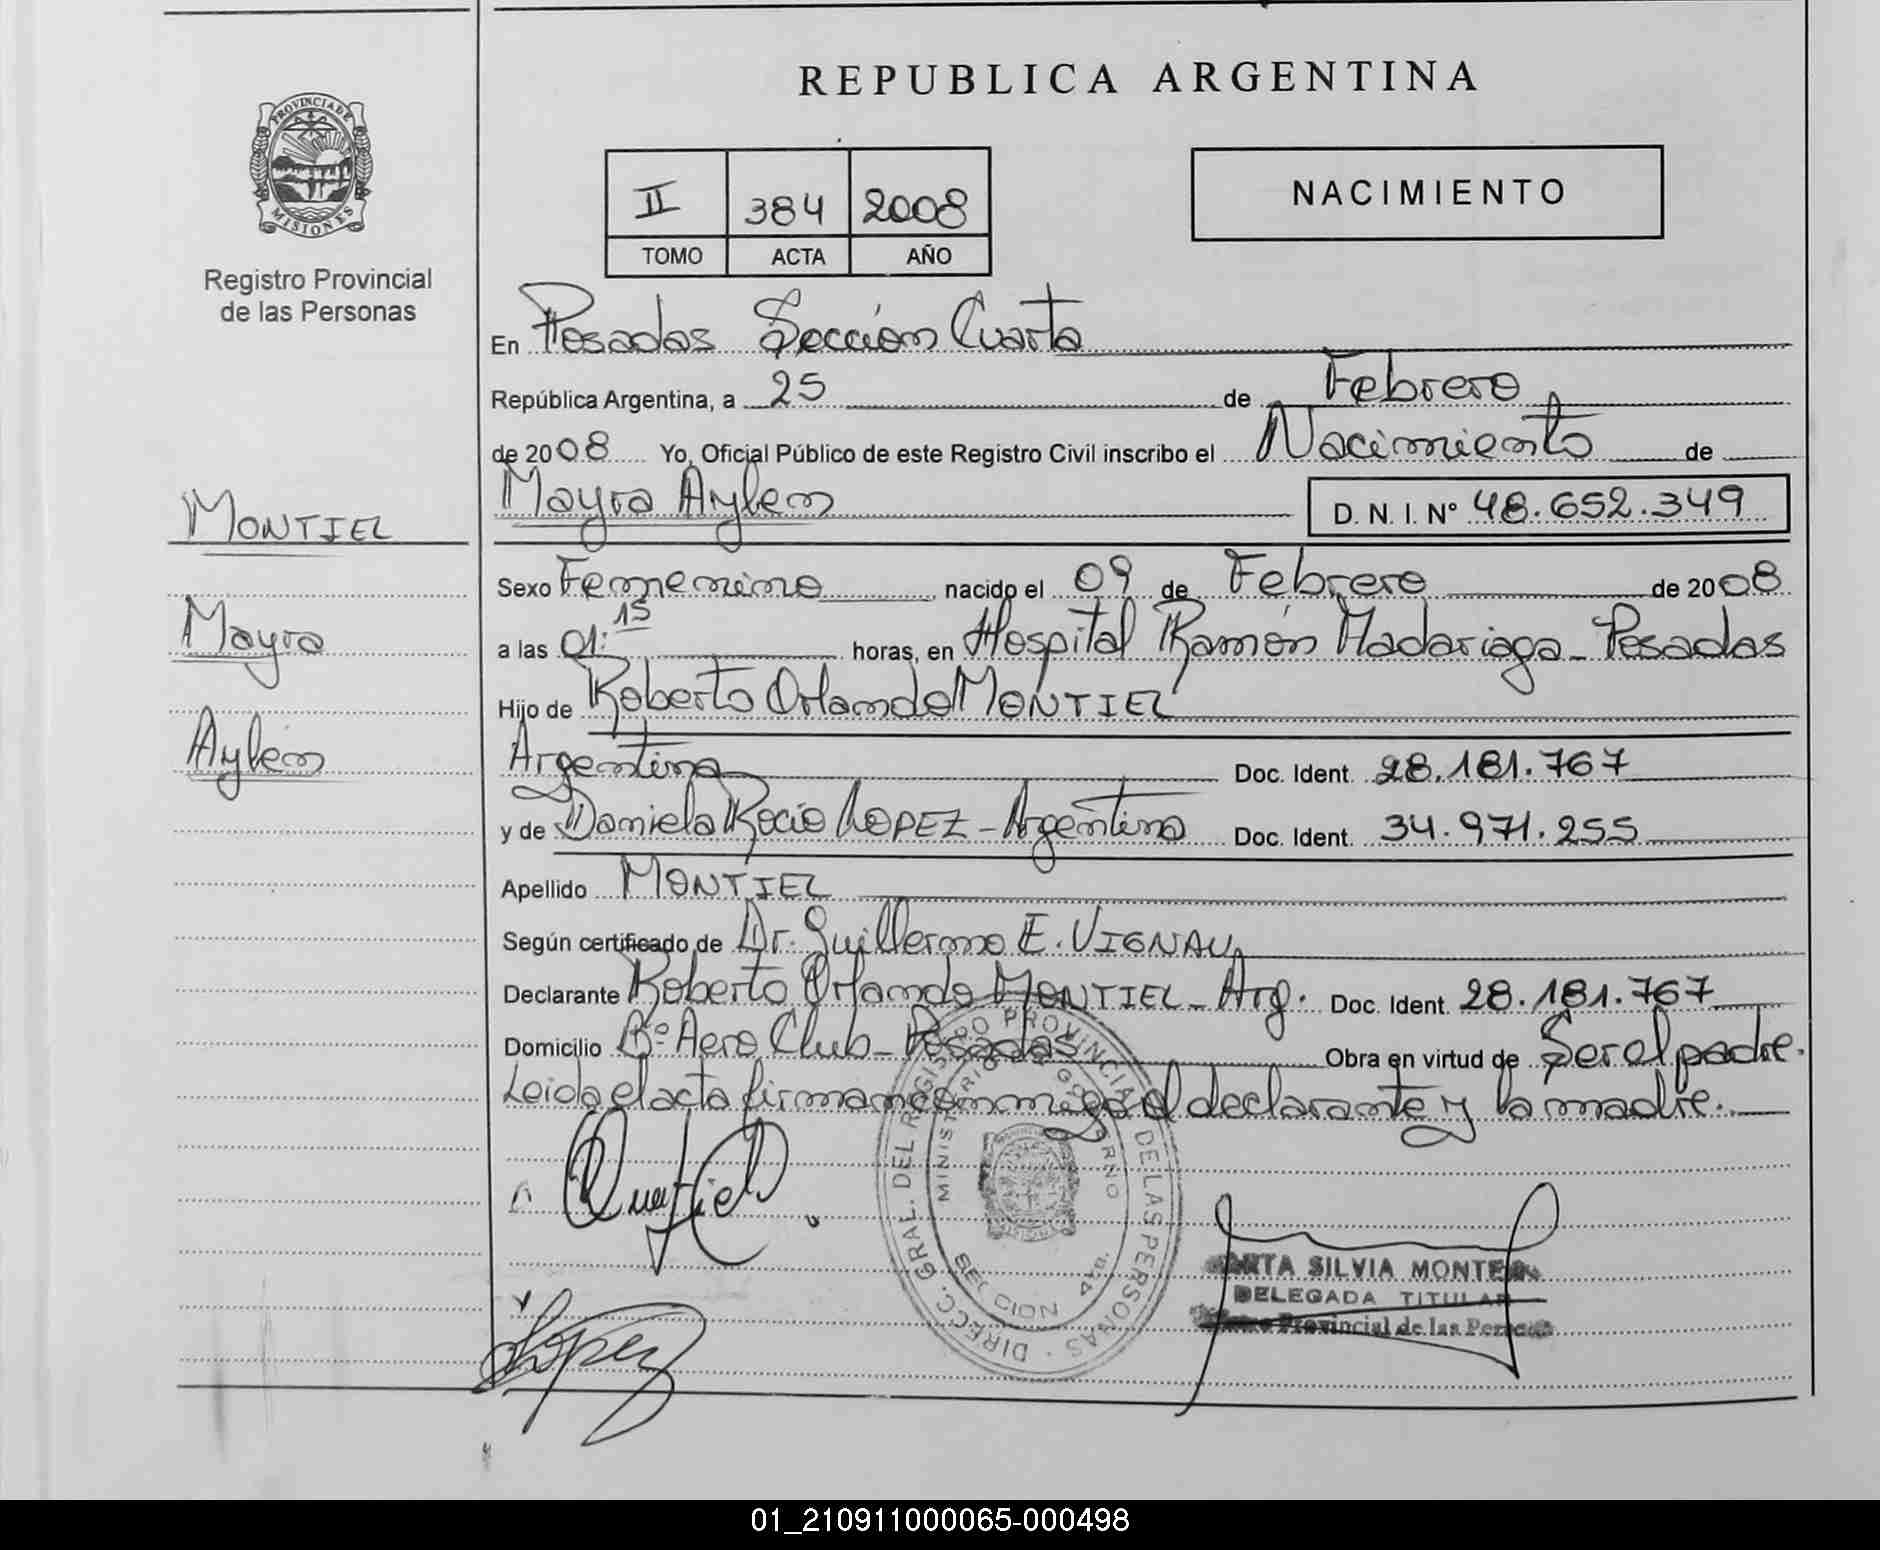 REPUBLICA ARGENTINA
PROVINCIA DE
MISIONES
Registro Provincial
de las Personas
II 384 2008
TOMO ACTA AÑO
NACIMIENTO
En Posadas Sección Cuarta
República Argentina, a 25 de Febrero
de 2008 Yo, Oficial Público de este Registro Civil inscribo el Nacimiento de
Mayra Aylen D. N. I. Nº 48.652.349
MONTIEL
Mayra
Aylen
Sexo Femenino nacido el 09 de Febrero de 2008
a las 01:15 horas, en Hospital Ramón Madariaga - Posadas
Hijo de Roberto Orlando MONTIEL
Argentina Doc. Ident. 28.181.767
y de Daniela Rocio LOPEZ - Argentina Doc. Ident. 34.971.255
Apellido MONTIEL
Según certificado de Dr. Guillermo E. VIGNAU
Declarante Roberto Orlando MONTIEL - Arg. Doc. Ident. 28.181.767
Domicilio Bº Aero Club - Posadas Obra en virtud de Ser el padre.
Leida el acta firman conmigo el declarante y la madre.
DIRECC. GRAL. DEL REGISTRO PROVINCIAL DE LAS PERSONAS
MINISTERIO DE GOBIERNO
SECCION 4ta.
Lopez
SILVIA MONTE
DELEGADA TITULAR
Provincial de las
01_210911000065-000498